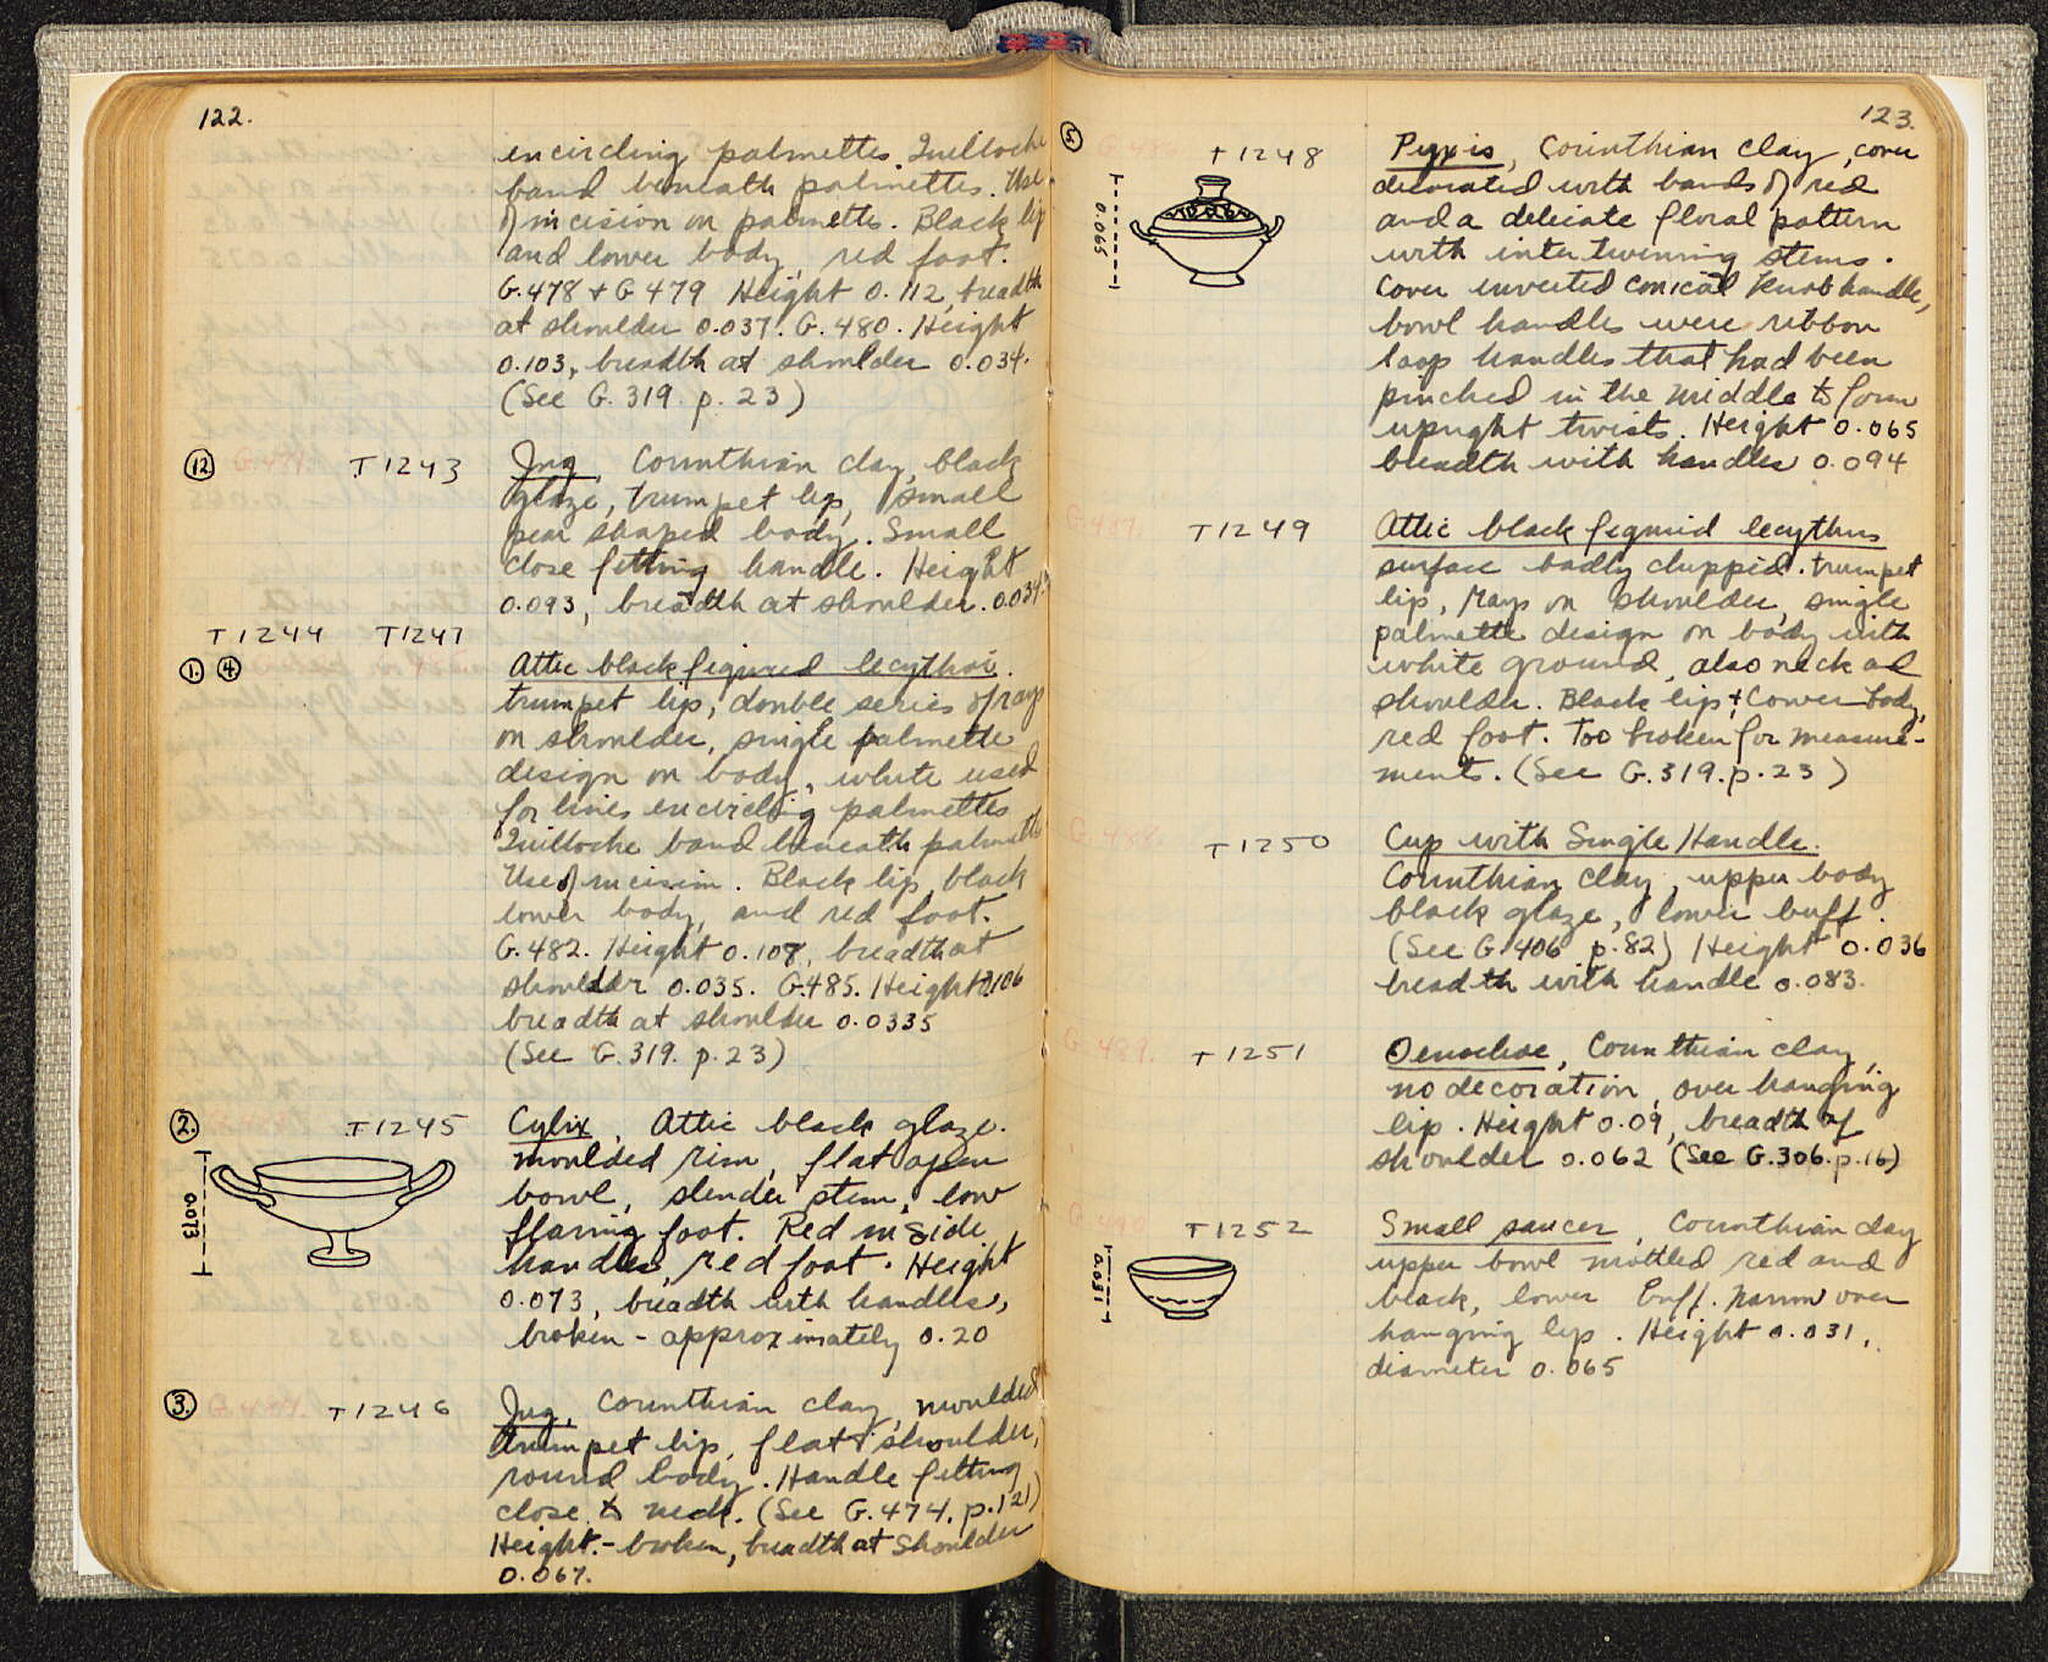 122.
encircling palmettes. Guilloche
band beneath palmettes. Use
of incision on palmette. Black lip
and lower body, red foot.
G.478 + G 479 Height 0.112, breadth
at shoulder 0.037. G. 480. Height
0.103, breadth at shoulder 0.034.
(See G. 319. p. 23)
12 G.481. T1243 Jug, Corinthian clay, black
glaze, trumpet lip, small
pear shaped body. Small
close fitting handle. Height
0.093, breadth at shoulder. 0.054.
T1244 T1247
1. 4 Attic black figured lecythoi.
trumpet lip, double series of rays
on shoulder, single palmette
design on body, white used
for lines encircling palmettes
Guilloche band beneath palmette
Use of incision. Black lip, black
lower body, and red foot.
G.482. Height 0.107, breadth at
shoulder 0.035. G.485. Height 0.106
breadth at shoulder 0.0335
(See G. 319. p. 23)
2. T1245 Cylix, Attic black glaze.
moulded rim, flat open
bowl, slender stem, low
flaring foot. Red inside
handles, red foot. Height
0.073, breadth with handles,
broken - approximately 0.20
0.073
3. G.484. T1246 Jug, Corinthian clay, moulded
trumpet lip, flat shoulder,
round body. Handle fitting
close to neck. (See G.474. p.121)
Height - broken, breadth at shoulder
0.067.
123.
5. T1248 Pyxis, Corinthian clay, cover
decorated with bands of red
and a delicate floral pattern
with intertwinning stems.
Cover inverted conical knob handle,
bowl handles were ribbon
loop handles that had been
pinched in the middle to form
upright twists. Height 0.065
breadth with handles 0.094
0.065
G.487. T1249 Attic black figured lecythus
surface badly chipped. trumpet
lip, rays on shoulder, single
palmette design on body with
white ground, also neck and
shoulder. Black lip + lower body,
red foot. Too broken for measure-
ments. (See G. 319. p. 23)
G.488. T1250 Cup with Single Handle.
Corinthian clay, upper body
black glaze, lower buff.
(See G.406 p.82) Height 0.036
breadth with handle 0.083.
G.489. T1251 Oenochoe, Corinthian clay,
no decoration, over hanging
lip. Height 0.09, breadth of
shoulder 0.062 (See G.306. p.16)
G.490 T1252 Small saucer, Corinthian clay
upper bowl mottled red and
black, lower buff. Narrow over
hanging lip. Height 0.031,
diameter 0.065
0.031